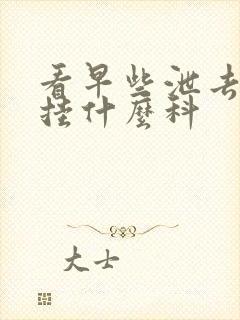 看早些泄去
挂什麼科
大士